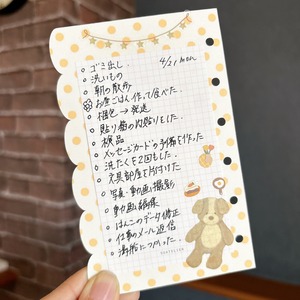 4/21 mon.
ゴミ出し.
洗いもの
朝の散歩
お昼ごはん作って食べた.
梱包→発送
貼り箱の内貼りをした.
検品
メッセージカードの予備を作った
洗たくを2回もした.
文具部屋を片付けた
写真・動画撮影
動画編集
はんこのデータ修正
仕事のメール返信
湯船につかった.